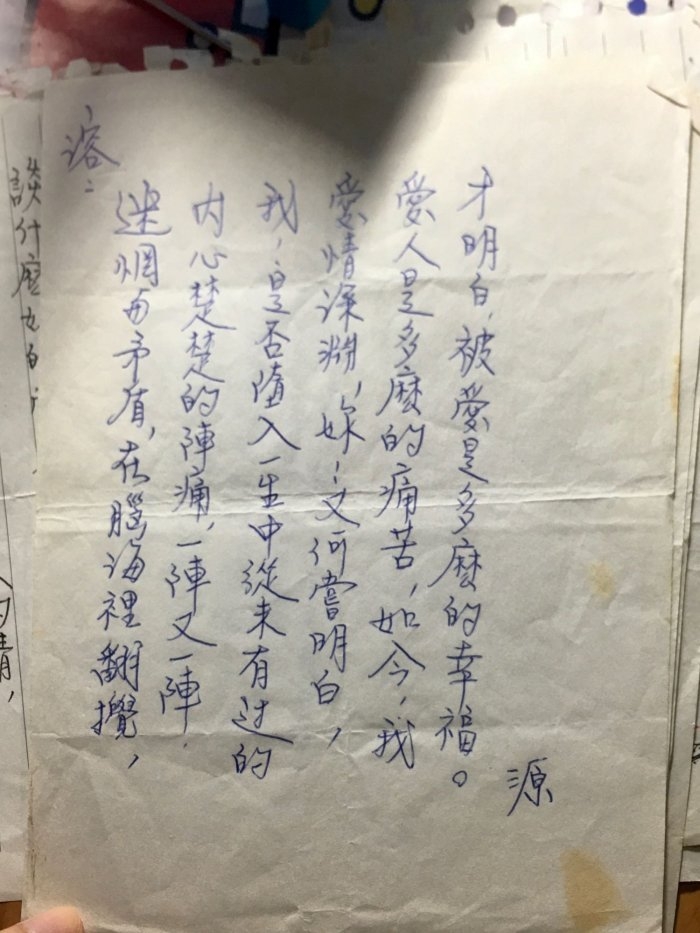 談什麼也白，
溶：
迷惘与矛盾，在腦海裡翻攪，
内心楚楚的陣痛，一陣又一陣，
我，是否墮入一生中從未有过的
愛情深淵，妳！又何嘗明白，
愛人是多麼的痛苦，如今，我
才明白，被愛是多麼的幸福。
源
的情，